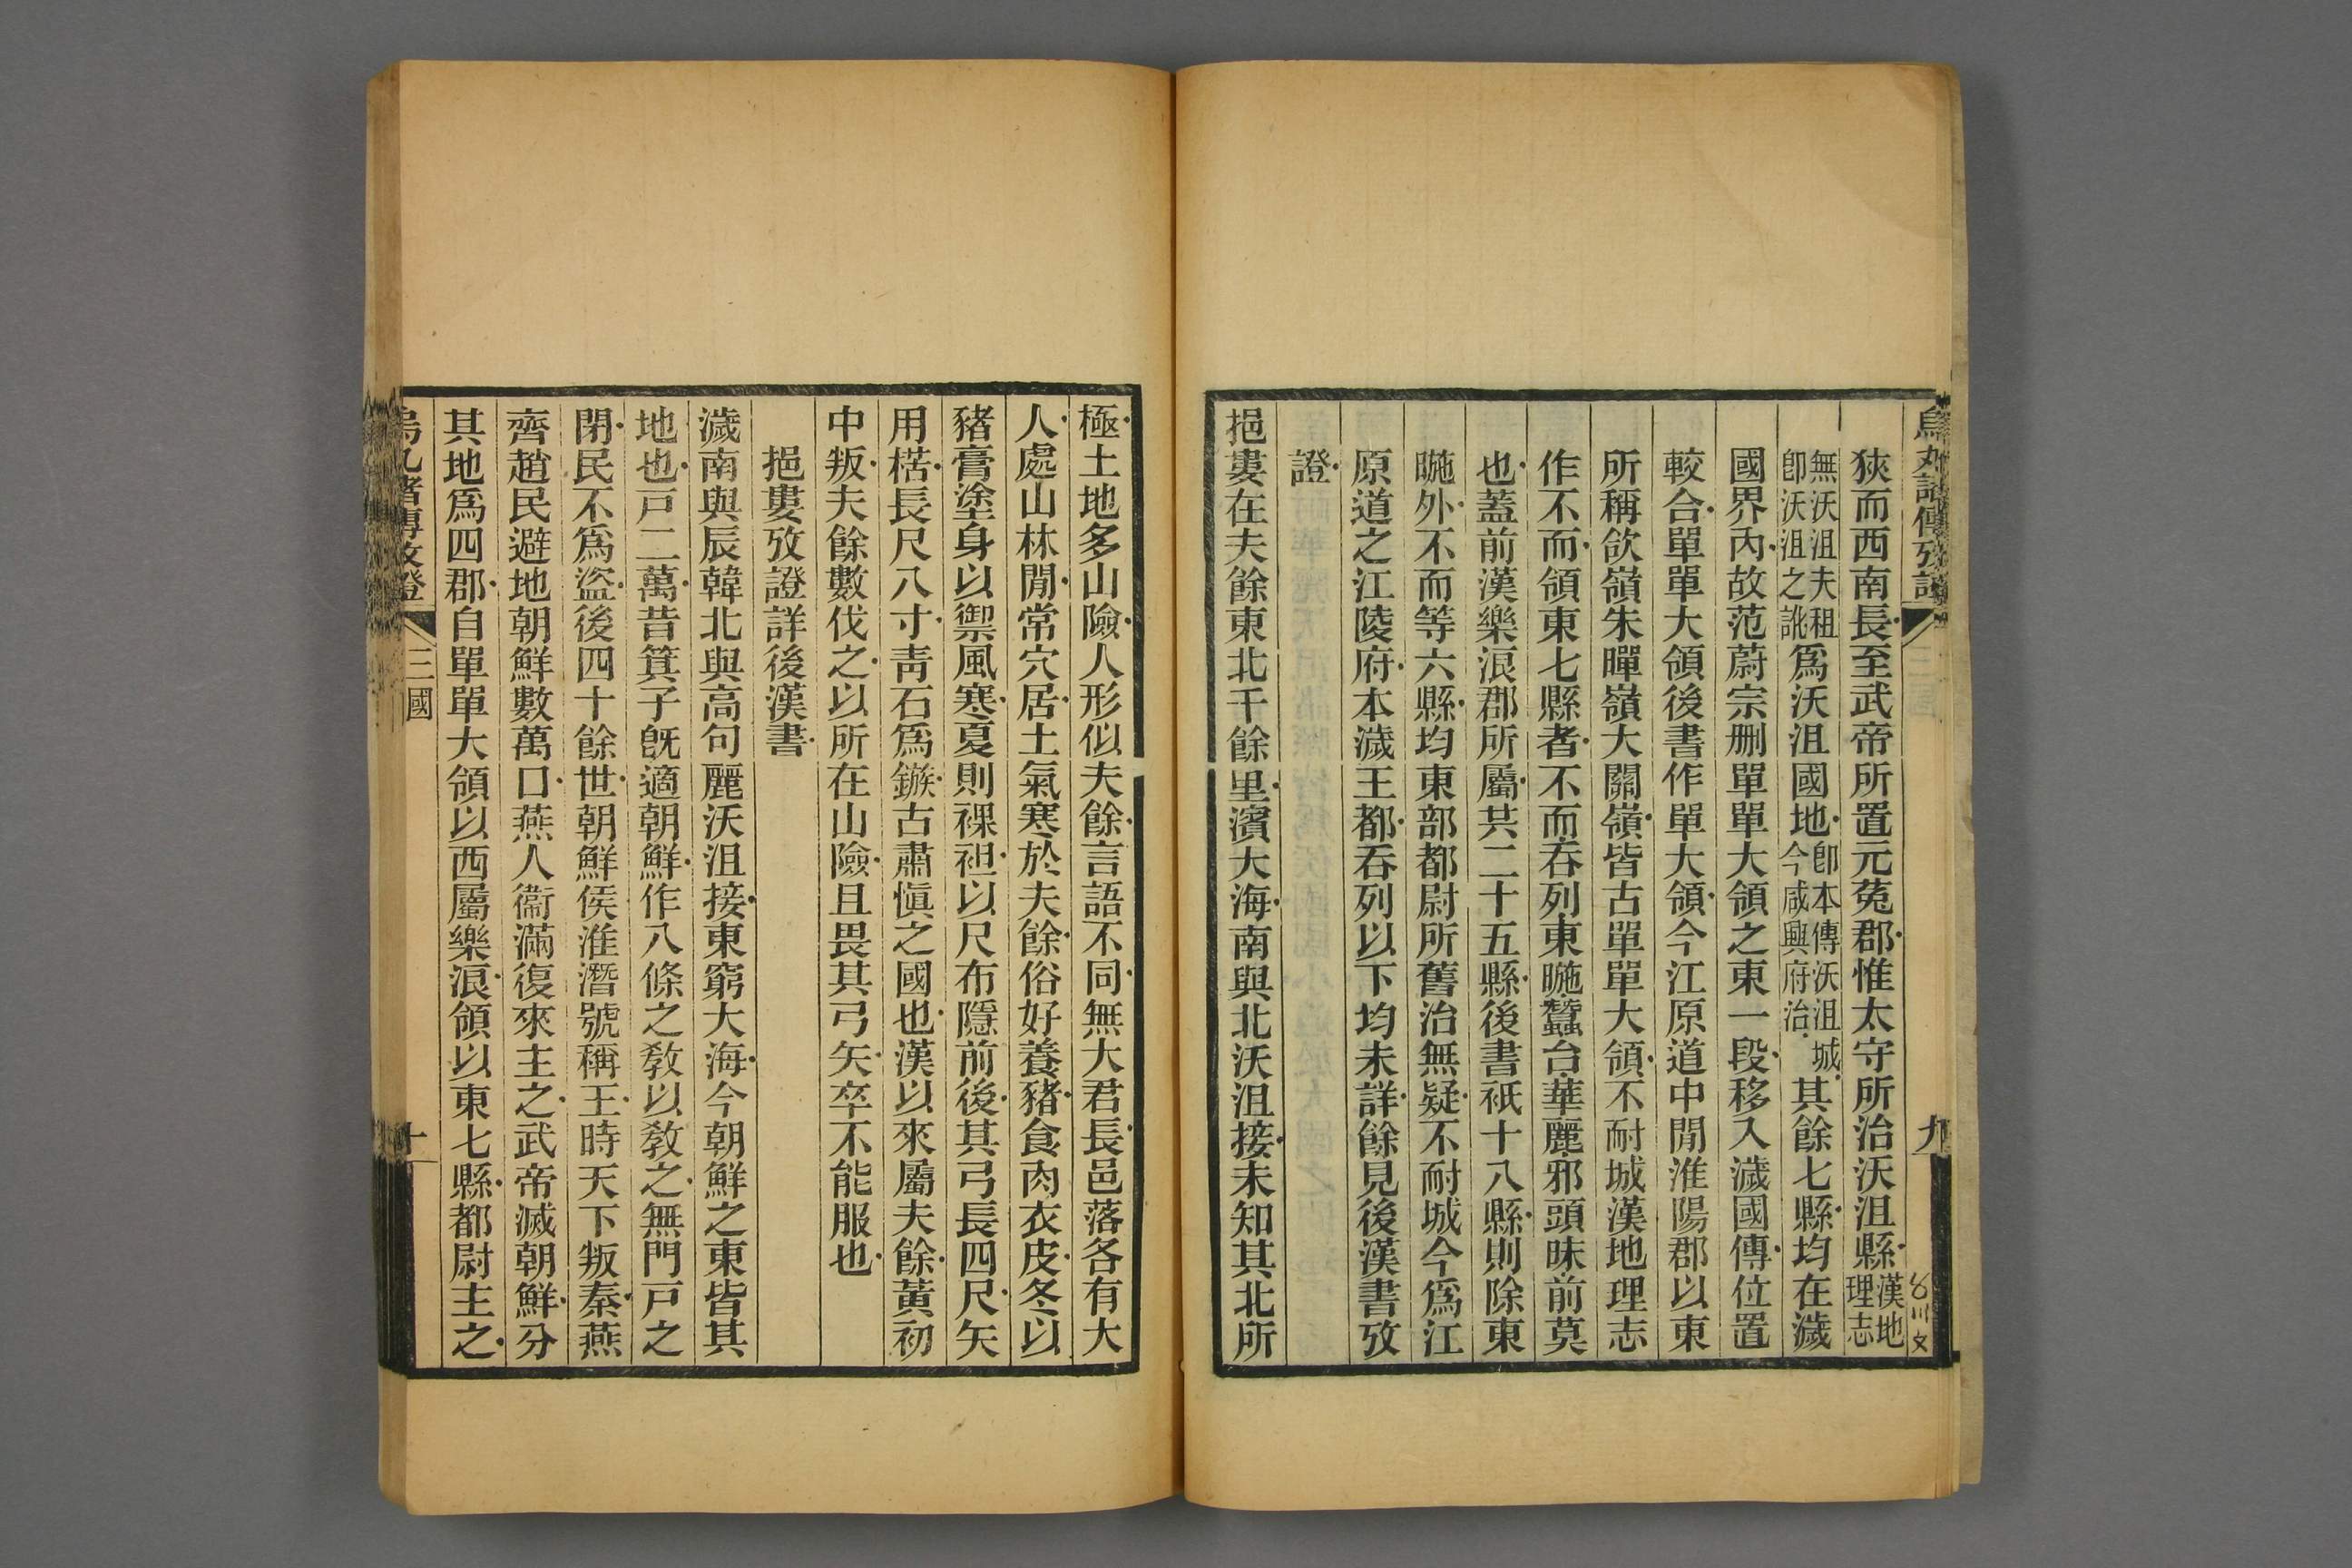 狹而西南長至武帝所置元菟郡惟太守所治沃沮縣漢地理志
無沃沮夫租卽沃沮之訛爲沃沮國地卽本傳沃沮城今咸興府治其餘七縣均在濊
國界內故范蔚宗删單單大領之東一段移入濊國傳位置
較合單單大領後書作單大領今江原道中閒淮陽郡以東
所稱欲嶺朱暉嶺大關嶺皆古單單大領不耐城漢地理志
作不而領東七縣者不而吞列東暆蠶台華麗邪頭昧前莫
也蓋前漢樂浪郡所屬共二十五縣後書祇十八縣則除東
暆外不而等六縣均東部都尉所舊治無疑不耐城今爲江
原道之江陵府本濊王都吞列以下均未詳餘見後漢書攷
證
挹婁在夫餘東北千餘里濱大海南與北沃沮接未知其北所
極土地多山險人形似夫餘言語不同無大君長邑落各有大
人處山林閒常穴居土氣寒於夫餘俗好養豬食肉衣皮冬以
豬膏塗身以禦風寒夏則裸袒以尺布隱前後其弓長四尺矢
用楛長尺八寸靑石爲鏃古肅愼之國也漢以來屬夫餘黃初
中叛夫餘數伐之以所在山險且畏其弓矢卒不能服也
挹婁攷證詳後漢書
濊南與辰韓北與高句麗沃沮接東窮大海今朝鮮之東皆其
地也戸二萬昔箕子旣適朝鮮作八條之敎以敎之無門戸之
閉民不爲盜後四十餘世朝鮮侯淮僭號稱王時天下叛秦燕
齊趙民避地朝鮮數萬口燕人衞滿復來主之武帝滅朝鮮分
其地爲四郡自單單大領以西屬樂浪領以東七縣都尉主之
三國
十